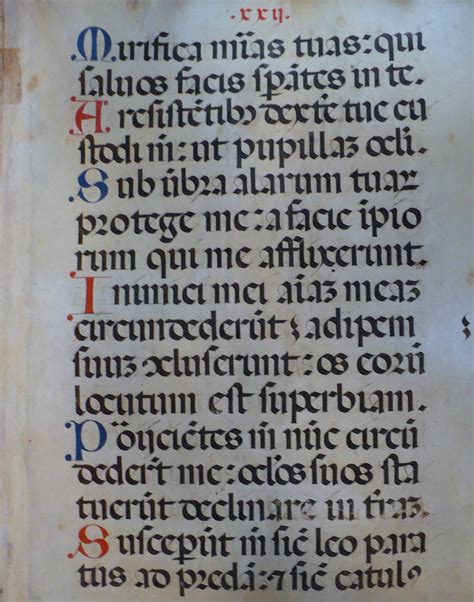 .xxij.
Mirifica mīas tuas: qui
saluos facis sp̄ātes in te.
A resistētibꝫ dexte᷒ tue cu
stodi m̄: ut pupillaꝫ oc̄li.
Sub ūbra alarum tuaꝝ
protege me: a facie īpio
rum qui me afflixerunt.
Inimici mei aīaꝫ meaꝫ
circundederūt ⁊ adipem
suuꝫ ↄcluserunt: os eorū
locutum est superbiam.
Pōijciētes m̄ nūc circū
dederūt me: oc̄los suos sta
tuerūt declinare in t̄raꝫ.
Susceperūt m̄ sic̄ leo para
tus ad predā: ⁊ sic̄ catulꝰ